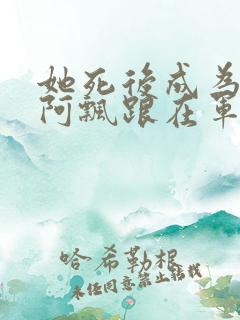 她死後成為
阿飄跟在軍
哈希勒根
未经同意禁止转载